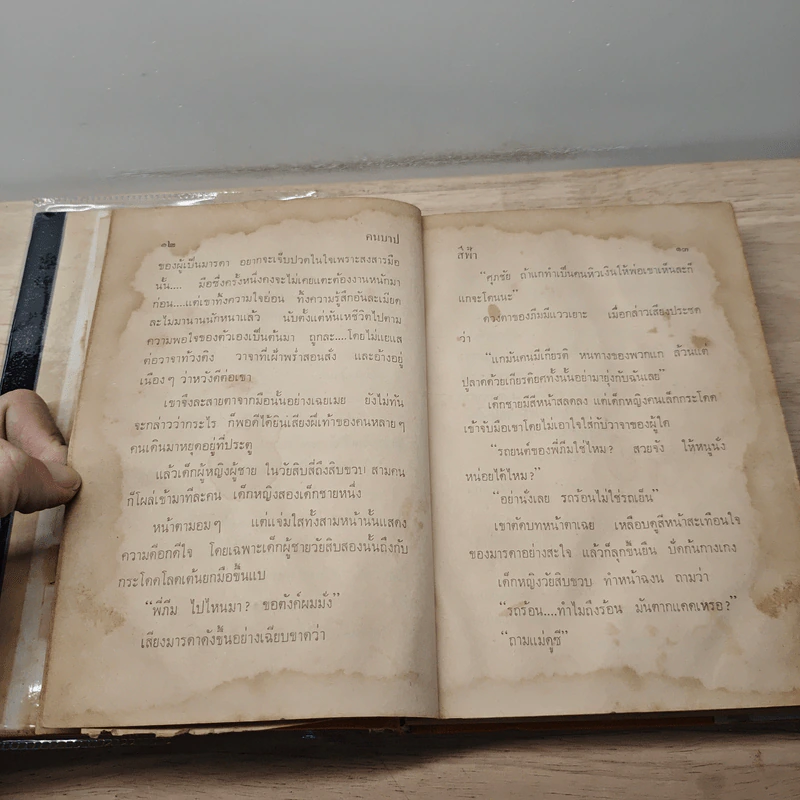 ๑๒ คนบาป
ของผู้เป็นมารดา อยากจะเจ็บปวดในใจเพราะสงสารมือ
นั้น.... มือซึ่งครั้งหนึ่งคงจะไม่เคยแตะต้องงานหนักมา
ก่อน....แต่เขาทั้งความใจอ่อน ทั้งความรู้สึกอันละเมียด
ละไมมานานนักหนาแล้ว นับตั้งแต่หันเหชีวิตไปตาม
ความพอใจของตัวเองเป็นต้นมา ถูกละ....โดยไม่แยแส
ต่อวาจาท้วงติง วาจาที่เฝ้าพร่ำสอนสั่ง และอ้างอยู่
เนืองๆ ว่าหวังดีต่อเขา
เขาจึงละสายตาจากมือนั้นอย่างเฉยเมย ยังไม่ทัน
จะกล่าวว่ากระไร ก็พอดีได้ยินเสียงฝีเท้าของคนหลายๆ
คนเดินมาหยุดอยู่ที่ประตู
แล้วเด็กผู้หญิงผู้ชาย ในวัยสิบสี่ถึงสิบขวบ สามคน
ก็โผล่เข้ามาทีละคน เด็กหญิงสองเด็กชายหนึ่ง
หน้าตามอมๆ แต่แจ่มใสทั้งสามหน้านั้นแสดง
ความดีอกดีใจ โดยเฉพาะเด็กผู้ชายวัยสิบสองนั้นถึงกับ
กระโดดโลดเต้นยกมือขึ้นแบ
“พี่ภีม ไปไหนมา? ขอตังค์ผมมั่ง”
เสียงมารดาดังขึ้นอย่างเฉียบขาดว่า
สีฟ้า ๑๓
“ศุภชัย ถ้าแกทำเป็นคนหิวเงินให้พ่อเขาเห็นละก็
แกจะโดนนะ”
ดวงตาของภีมมีแววเยาะ เมื่อกล่าวเสียงประชด
ว่า
“แกมันคนมีเกียรติ หนทางของพวกแก ล้วนแต่
ปูลาดด้วยเกียรติยศทั้งนั้นอย่ามายุ่งกับฉันเลย”
เด็กชายมีสีหน้าสลดลง แต่เด็กหญิงคนเล็กกระโดด
เข้าจับมือเขาโดยไม่เอาใจใส่กับวาจาของผู้ใด
“รถยนต์ของพี่ภีมใช่ไหม? สวยจัง ให้หนูนั่ง
หน่อยได้ไหม?”
“อย่านั่งเลย รถร้อนไม่ใช่รถเย็น”
เขาตัดบทหน้าตาเฉย เหลือบดูสีหน้าสะเทือนใจ
ของมารดาอย่างสะใจ แล้วก็ลุกขึ้นยืน ปัดก้นกางเกง
เด็กหญิงวัยสิบขวบ ทำหน้าฉงน ถามว่า
“รถร้อน....ทำไมถึงร้อน มันตากแดดเหรอ?”
“ถามแม่ดูซี”